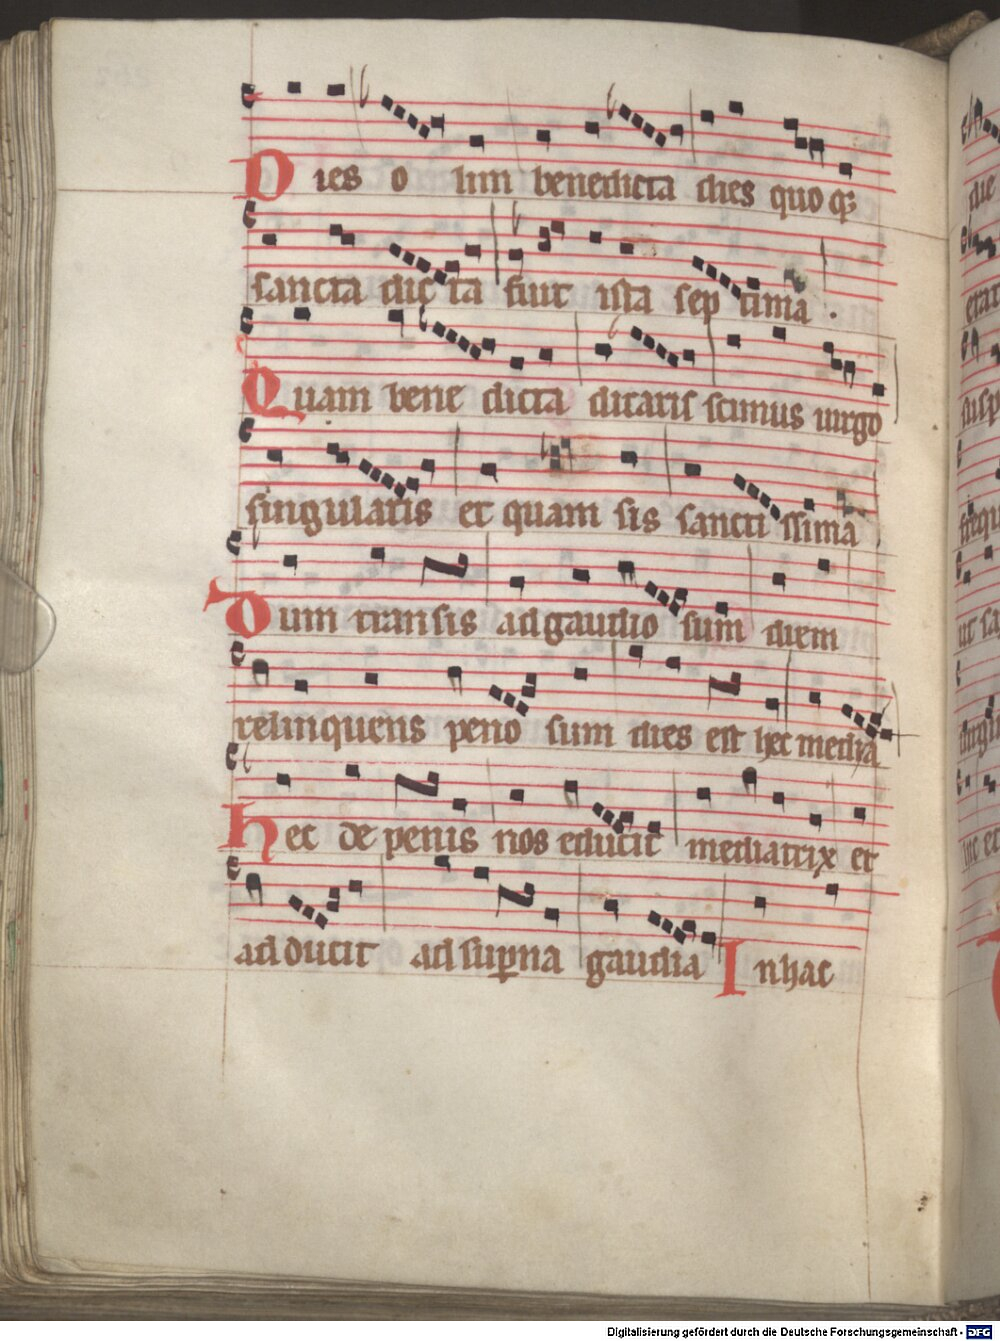 Dies o lim benedicta dies quo qꝫ
sancta dic ta fuit ista sep tima .
Quam bene dicta dicaris scimus uirgo
singularis et quam sis sancti ssima
Dum transis ad gaudio sum diem
relinquens peno sum dies est hec media
Hec de penis nos educit mediatrix et
ad ducit ad suꝑna gaudia In hac
Digitalisierung gefördert durch die Deutsche Forschungsgemeinschaft - DFG